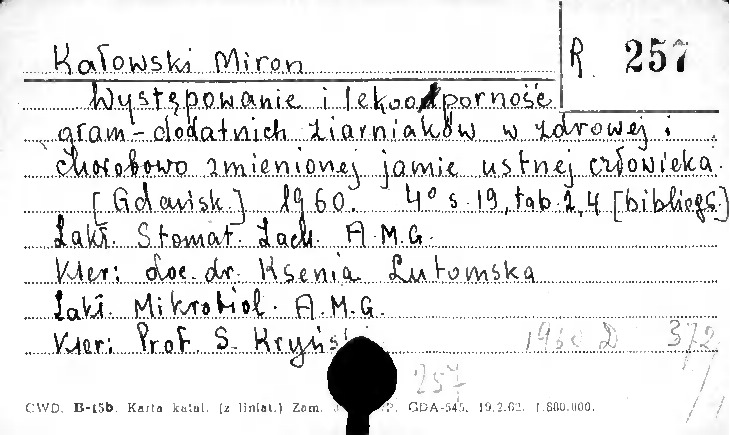 Kałowski Miron
R. 257
Występowanie i lekooodporność
gram-dodatnich ziarniaków w zdrowej i
chorobowo zmienionej jamie ustnej człowieka.
[Gdańsk.] 1960. 4° s. 19, tab. 2, 4 [bibliogr.]
Zakł. Stomat. Zach. A.M.G.
Kier: doc. dr. Ksenia Lutomska
Zakł. Mikrobiol. A.M.G.
Kier: Prof. S. Kryński
1960 D 372
257
CWD. B-15b. Karta katal. (z liniat.) Zam. GDA-545. 19.2.62. 1.800.000.